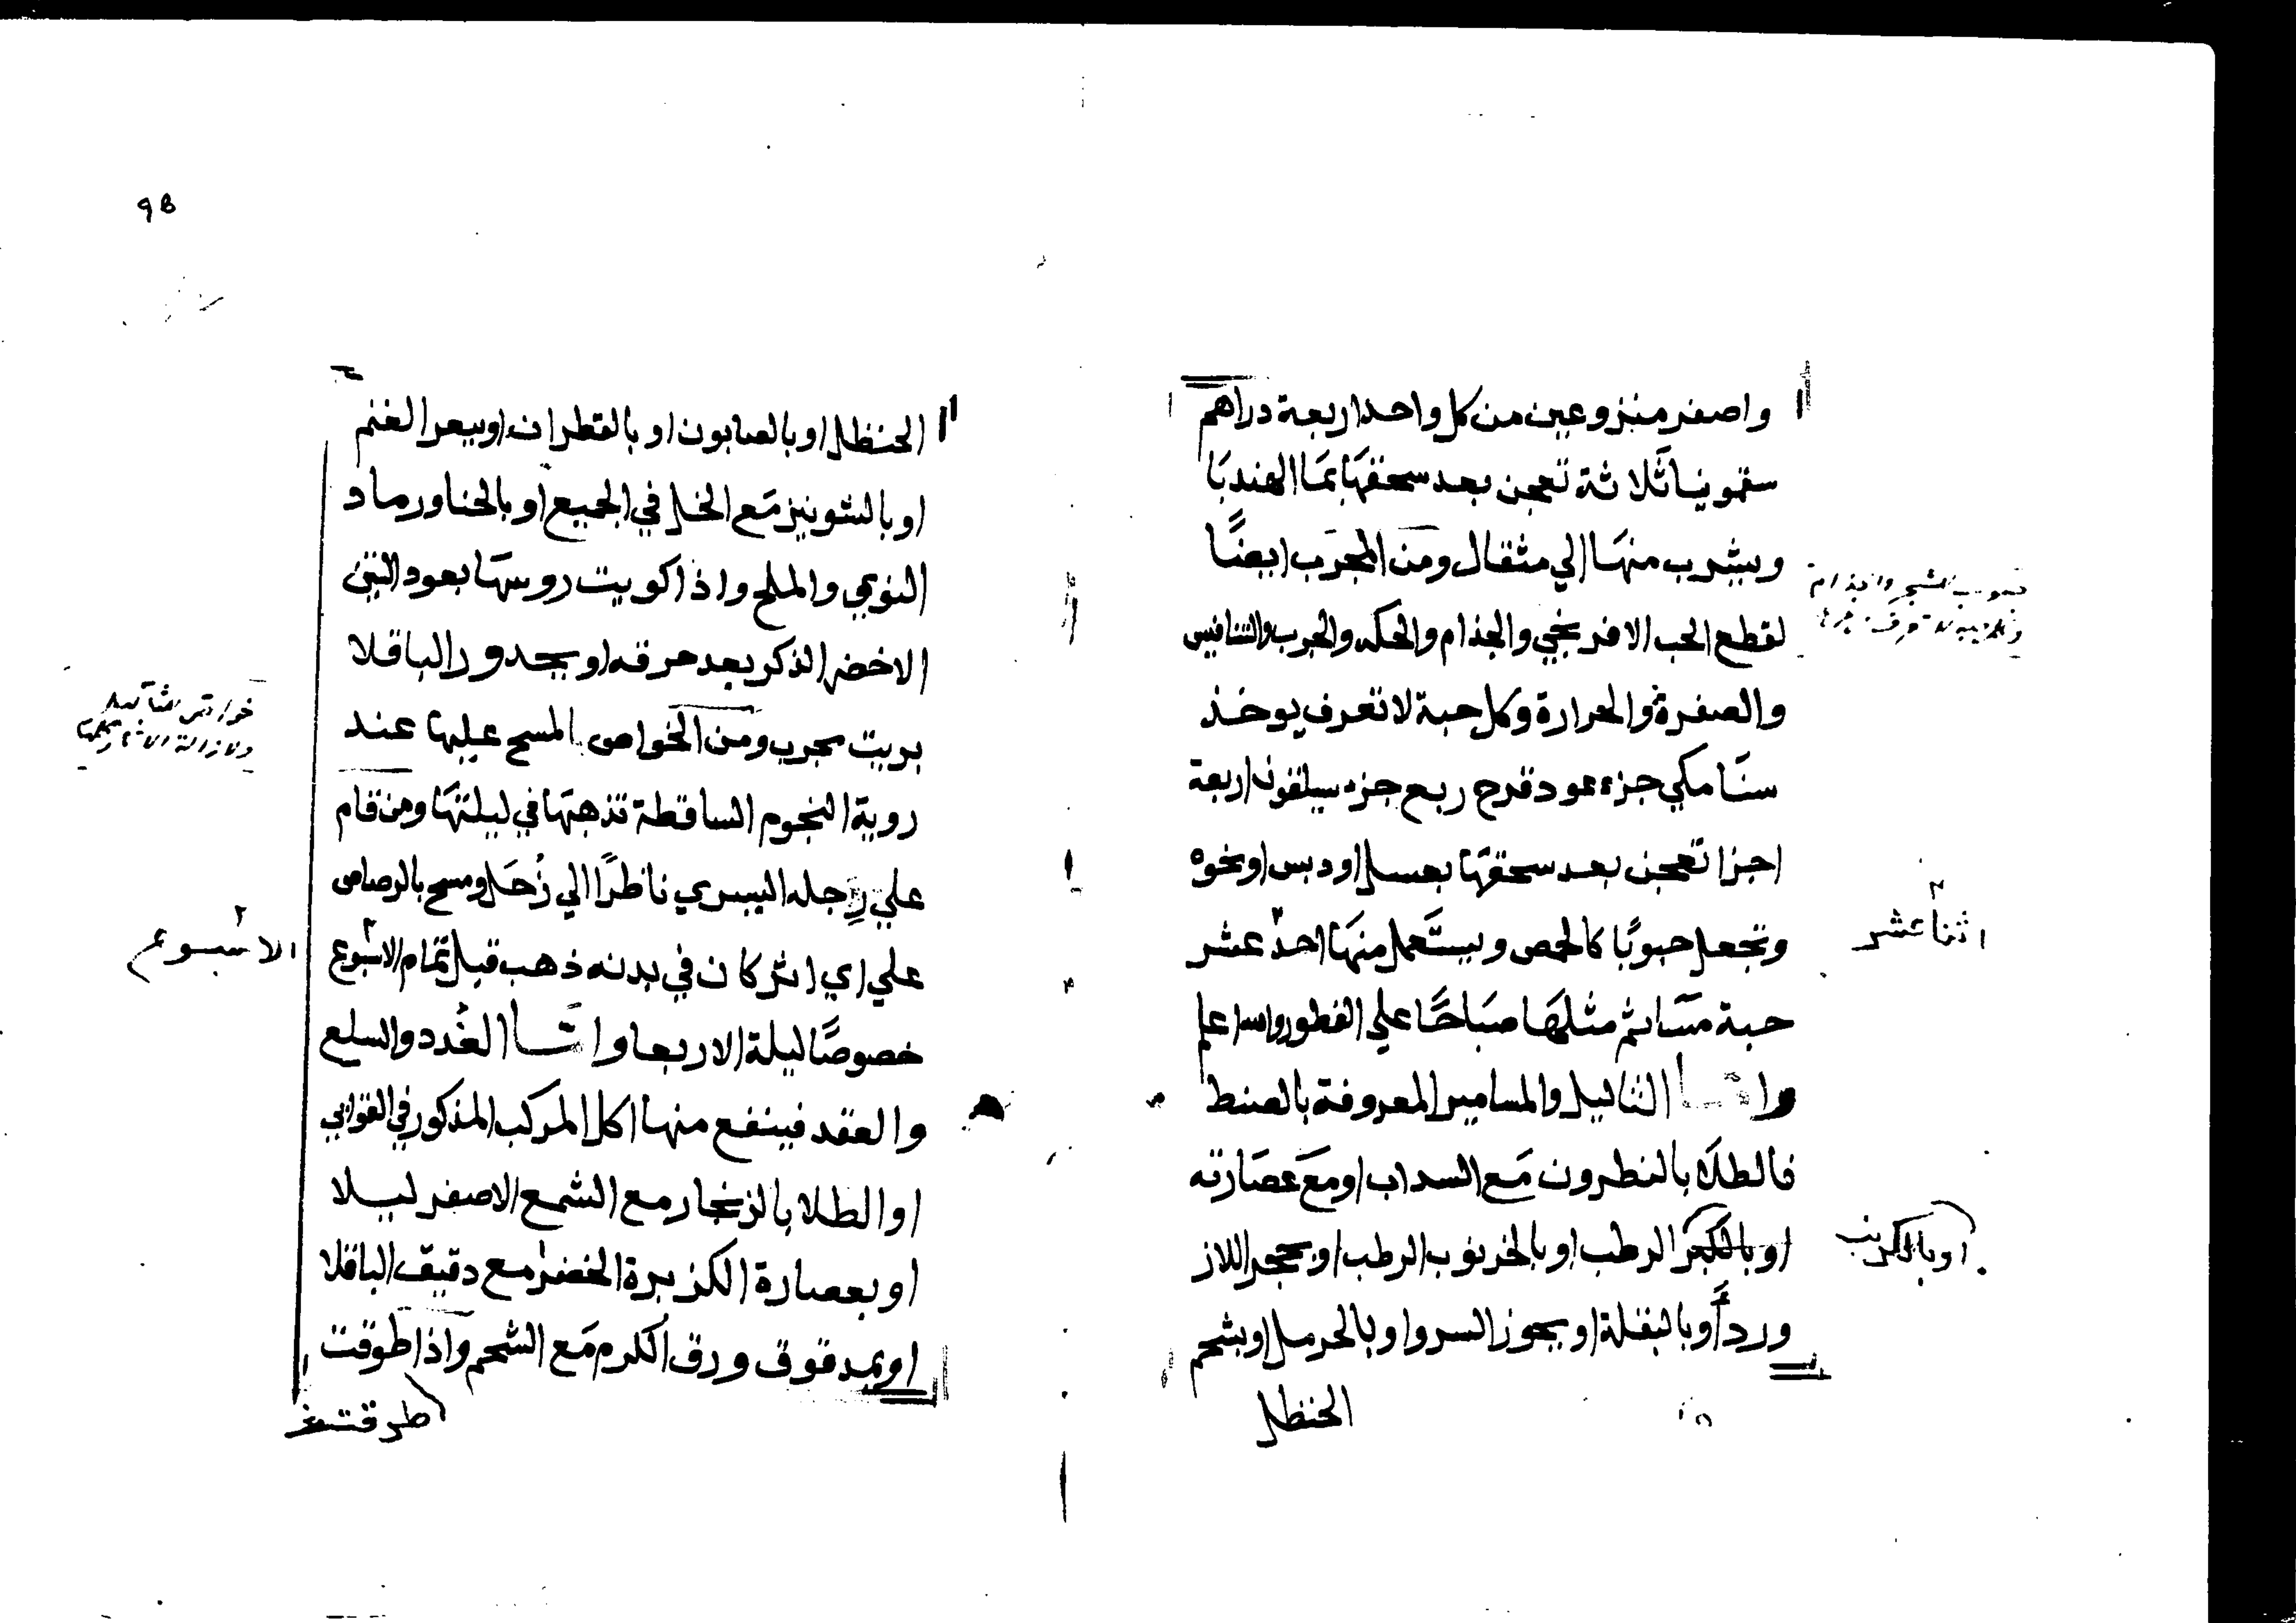 واصفر منزوعين من كل واحد اربعة دراهم
سقمونيا ثلاثة تعجن بعد سحقها بما الهندبا
ويشرب منها الي مثقال ومن المجرب ايضًا
لقطع الحب الافرنجي والجذام والحكه والجرب والنتنافيس
والصفرة والحرارة وكل حبة لا تعرف يوخذ
سنا مكي جزء عود قرح ربع جزء سيلقون اربعة
اجزا تعجن بعد سحقها بعسل او دبس او نحوه
وتجعل حبوبًا كالحمص ويستعمل منها احد عشر
اثنا عشر
حبة مسا ثم مثلها صباحًا علي الفطور والله اعلم
واما الثاليل والمسامير المعروفة بالصنط
فالطلا بالنطرون مع السداب او مع عصارته
او بالكبر الرطب او بالخرنوب الرطب او بحجر اللاز
او بالكرنب
ورد او بالبقلة او بجوز السرو او بالحرمل او بشحم
الحنظل
٩٥
الحنظل او بالصابون او بالقطران او ببعر الغنم
او بالشونيز مع الخل في الجميع او بالحنا ورماد
النوي والملح واذا كويت روسها بعود التين
الاخضر الذكر بعد حرقه او بجدور الباقلا
بريت مجرب ومن الخواص المسح عليها عند
روية النجوم الساقطة تذهبها في ليلتها ومن قام
علي رجله اليسري ناظرًا الي زُحَل ومسح بالرصاص
علي اي اثر كان في بدنه ذهب قبل تمام الاسبوع
الاسبوع
خصوصًا ليلة الاربعا واما الغُدد والسلع
والعقد فينفع منها اكل المركب المذكور في القوابي
او الطلا بالزنجار مع الشمع الاصفر ليلا
او بعصارة الكزبرة الخضرا مع دقيق الباقلا
او بمدقوق ورق الكرم مع الشحم واذا طوقت
طرقت